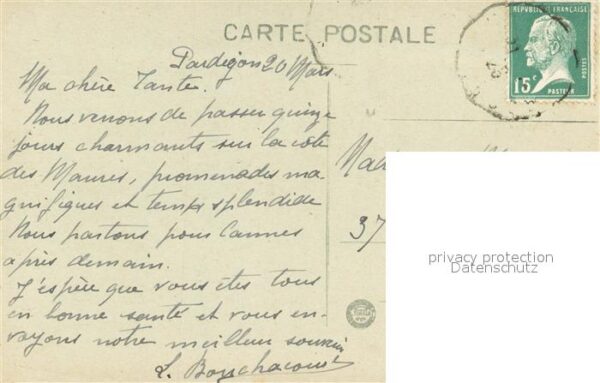 CARTE POSTALE
REPUBLIQUE FRANÇAISE
POSTES
15c
PASTEUR
Pardigon 20 Mars
Ma chère Tante.
Nous venons de passer quinze
jours charmants sur la côte
des Maures, promenades ma
gnifiques et temps splendide
Nous partons pour Cannes
après demain.
J'espère que vous êtes tous
en bonne santé et vous en-
voyons notre meilleur souvenir
37
privacy protection
Datenschutz